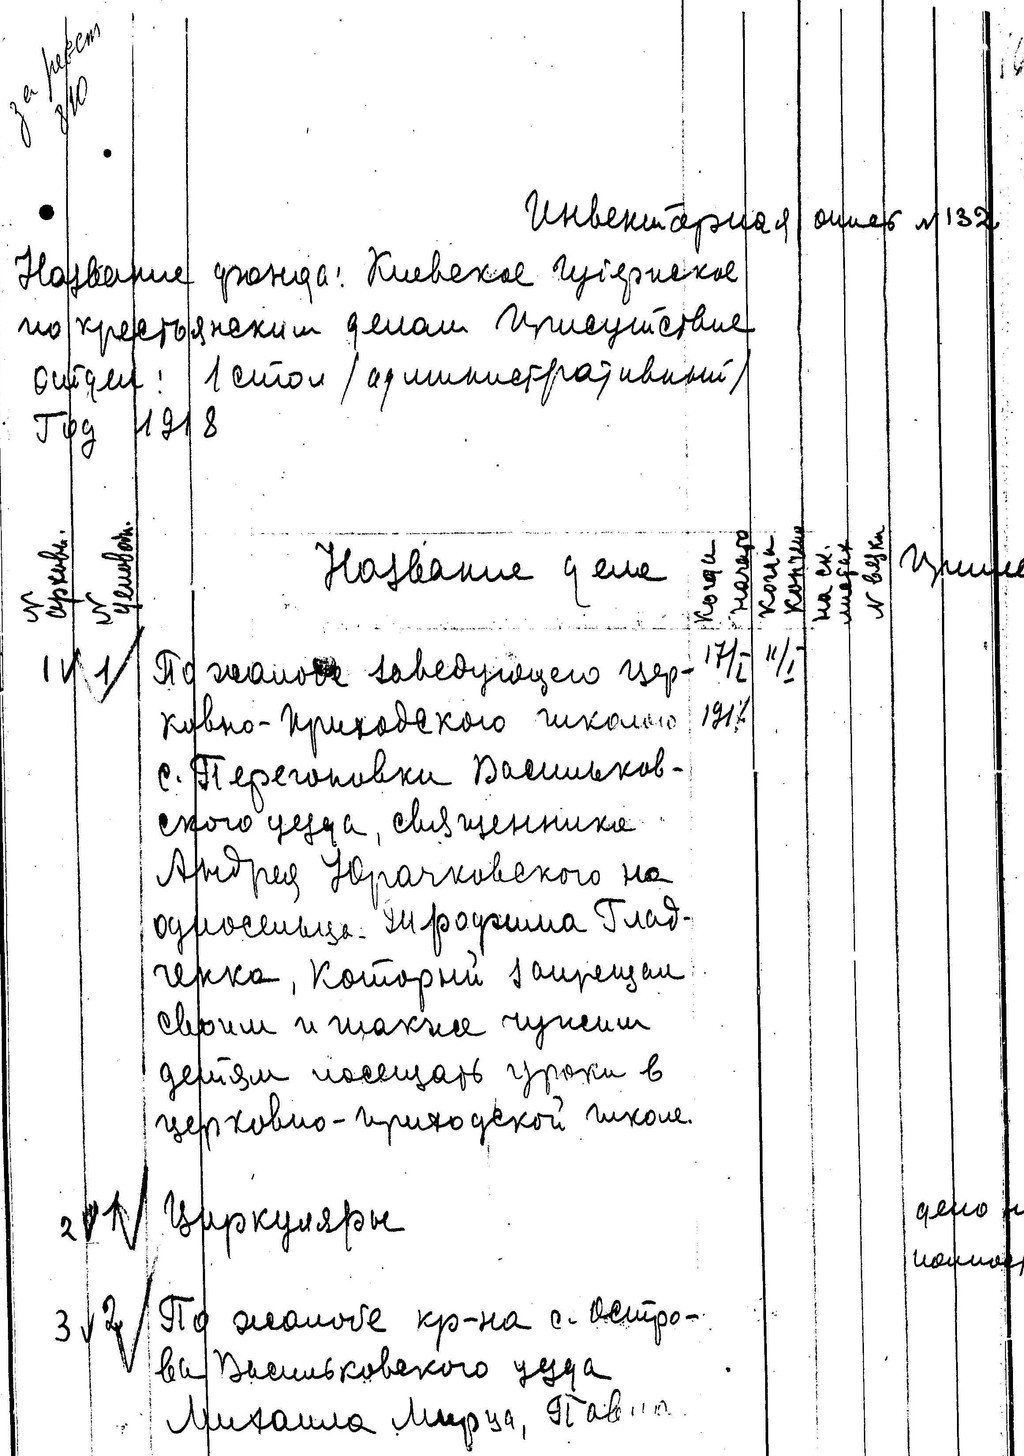 за
Инвентарная опись № 132
Название фонда: Киевское Губернское
по крестьянским делам Присутствие
отдел: 1 стол /административный/
Год 1918
№ архивн.
№ деловой.
Название дела
Когда начато
Когда кончено
на ск. листах
№ вязки
1 1 По жалобе заведующего цер- 17/I 11/I
ковно-приходского школою 191
с. Перегоновки Васильков-
ского уезда, священника
Андрея Юрачковского на
односельца Трофима Глад-
ченка, который запрещал
своим и также чужим
детям посещать уроки в
церковно-приходской школе.
2 1 Циркуляры дело
3 2 По жалобе кр-на с. Остро-
ва Васильковского уезда
Михаила Мирца,